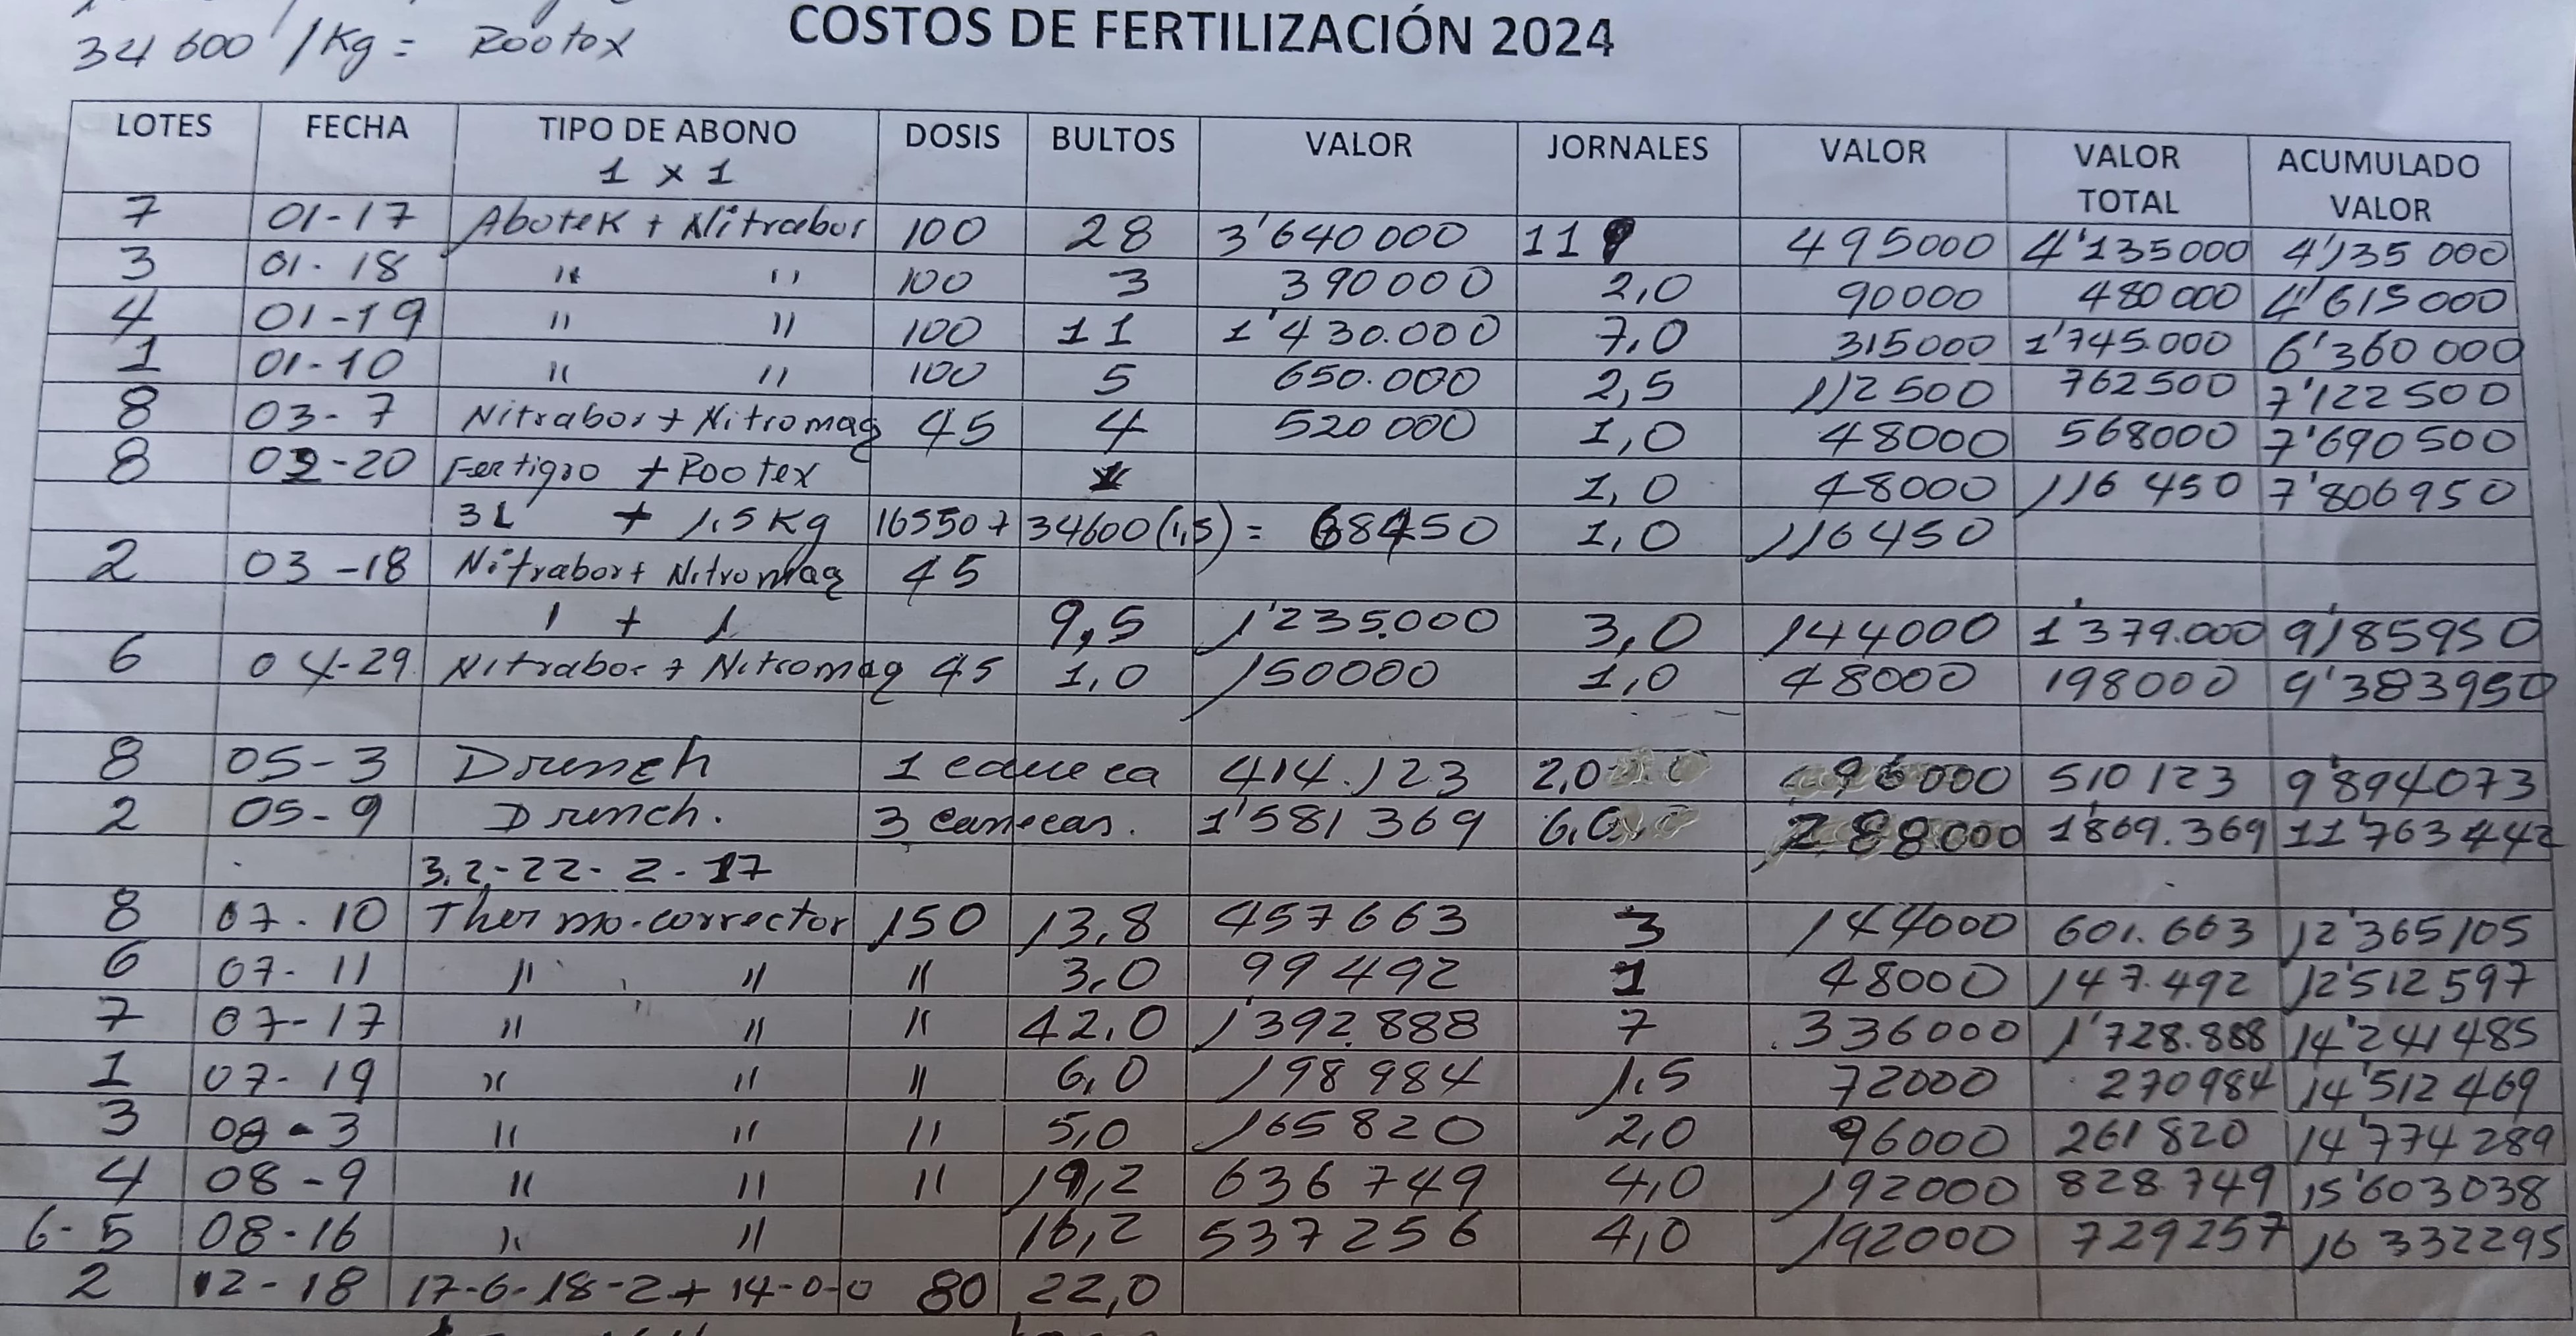 34 600 /Kg = Rootox
COSTOS DE FERTILIZACIÓN 2024
LOTES FECHA TIPO DE ABONO DOSIS BULTOS VALOR JORNALES VALOR VALOR TOTAL ACUMULADO VALOR
1 x 1
7 01-17 Abotek + Nitrabor 100 28 3'640000 11 495000 4'135000 4'135000
3 01-18 " " 100 3 390000 2,0 90000 480000 4'615000
4 01-19 " " 100 11 1'430.000 7,0 315000 1'745.000 6'360000
1 01-10 " " 100 5 650.000 2,5 112500 762500 7'122500
8 03-7 Nitrabor + Nitromag 45 4 520000 1,0 48000 568000 7'690500
8 02-20 Fertigro + Rootex 1,0 48000 116450 7'806950
3L + 1.5 Kg 16550 + 34600 (1,5) = 68450 1,0 116450
2 03-18 Nitrabor + Nitromag 45
1 + 1 9,5 1'235.000 3,0 144000 1'379.000 9'185950
6 04-29 Nitrabor + Nitromag 45 1,0 150000 1,0 48000 198000 9'383950
8 05-3 Drench 1 caneca 414.123 2,0 96000 510123 9'894073
2 05-9 Drench. 3 canecas. 1'581369 6,0 288000 1'869.369 11'763442
3.2-22-2-17
8 07-10 Thermo-corrector 150 13,8 457663 3 144000 601.663 12'365105
6 07-11 " " " 3,0 99492 1 48000 147.492 12'512597
7 07-17 " " " 42,0 1'392.888 7 336000 1'728.888 14'241485
1 07-19 " " " 6,0 198984 1.5 72000 270984 14'512469
3 08-3 " " " 5,0 165820 2,0 96000 261820 14'774289
4 08-9 " " " 19,2 636749 4,0 192000 828749 15'603038
6-5 08-16 " " 16,2 537256 4,0 192000 729257 16332295
2 12-18 17-6-18-2 + 14-0-0 80 22,0